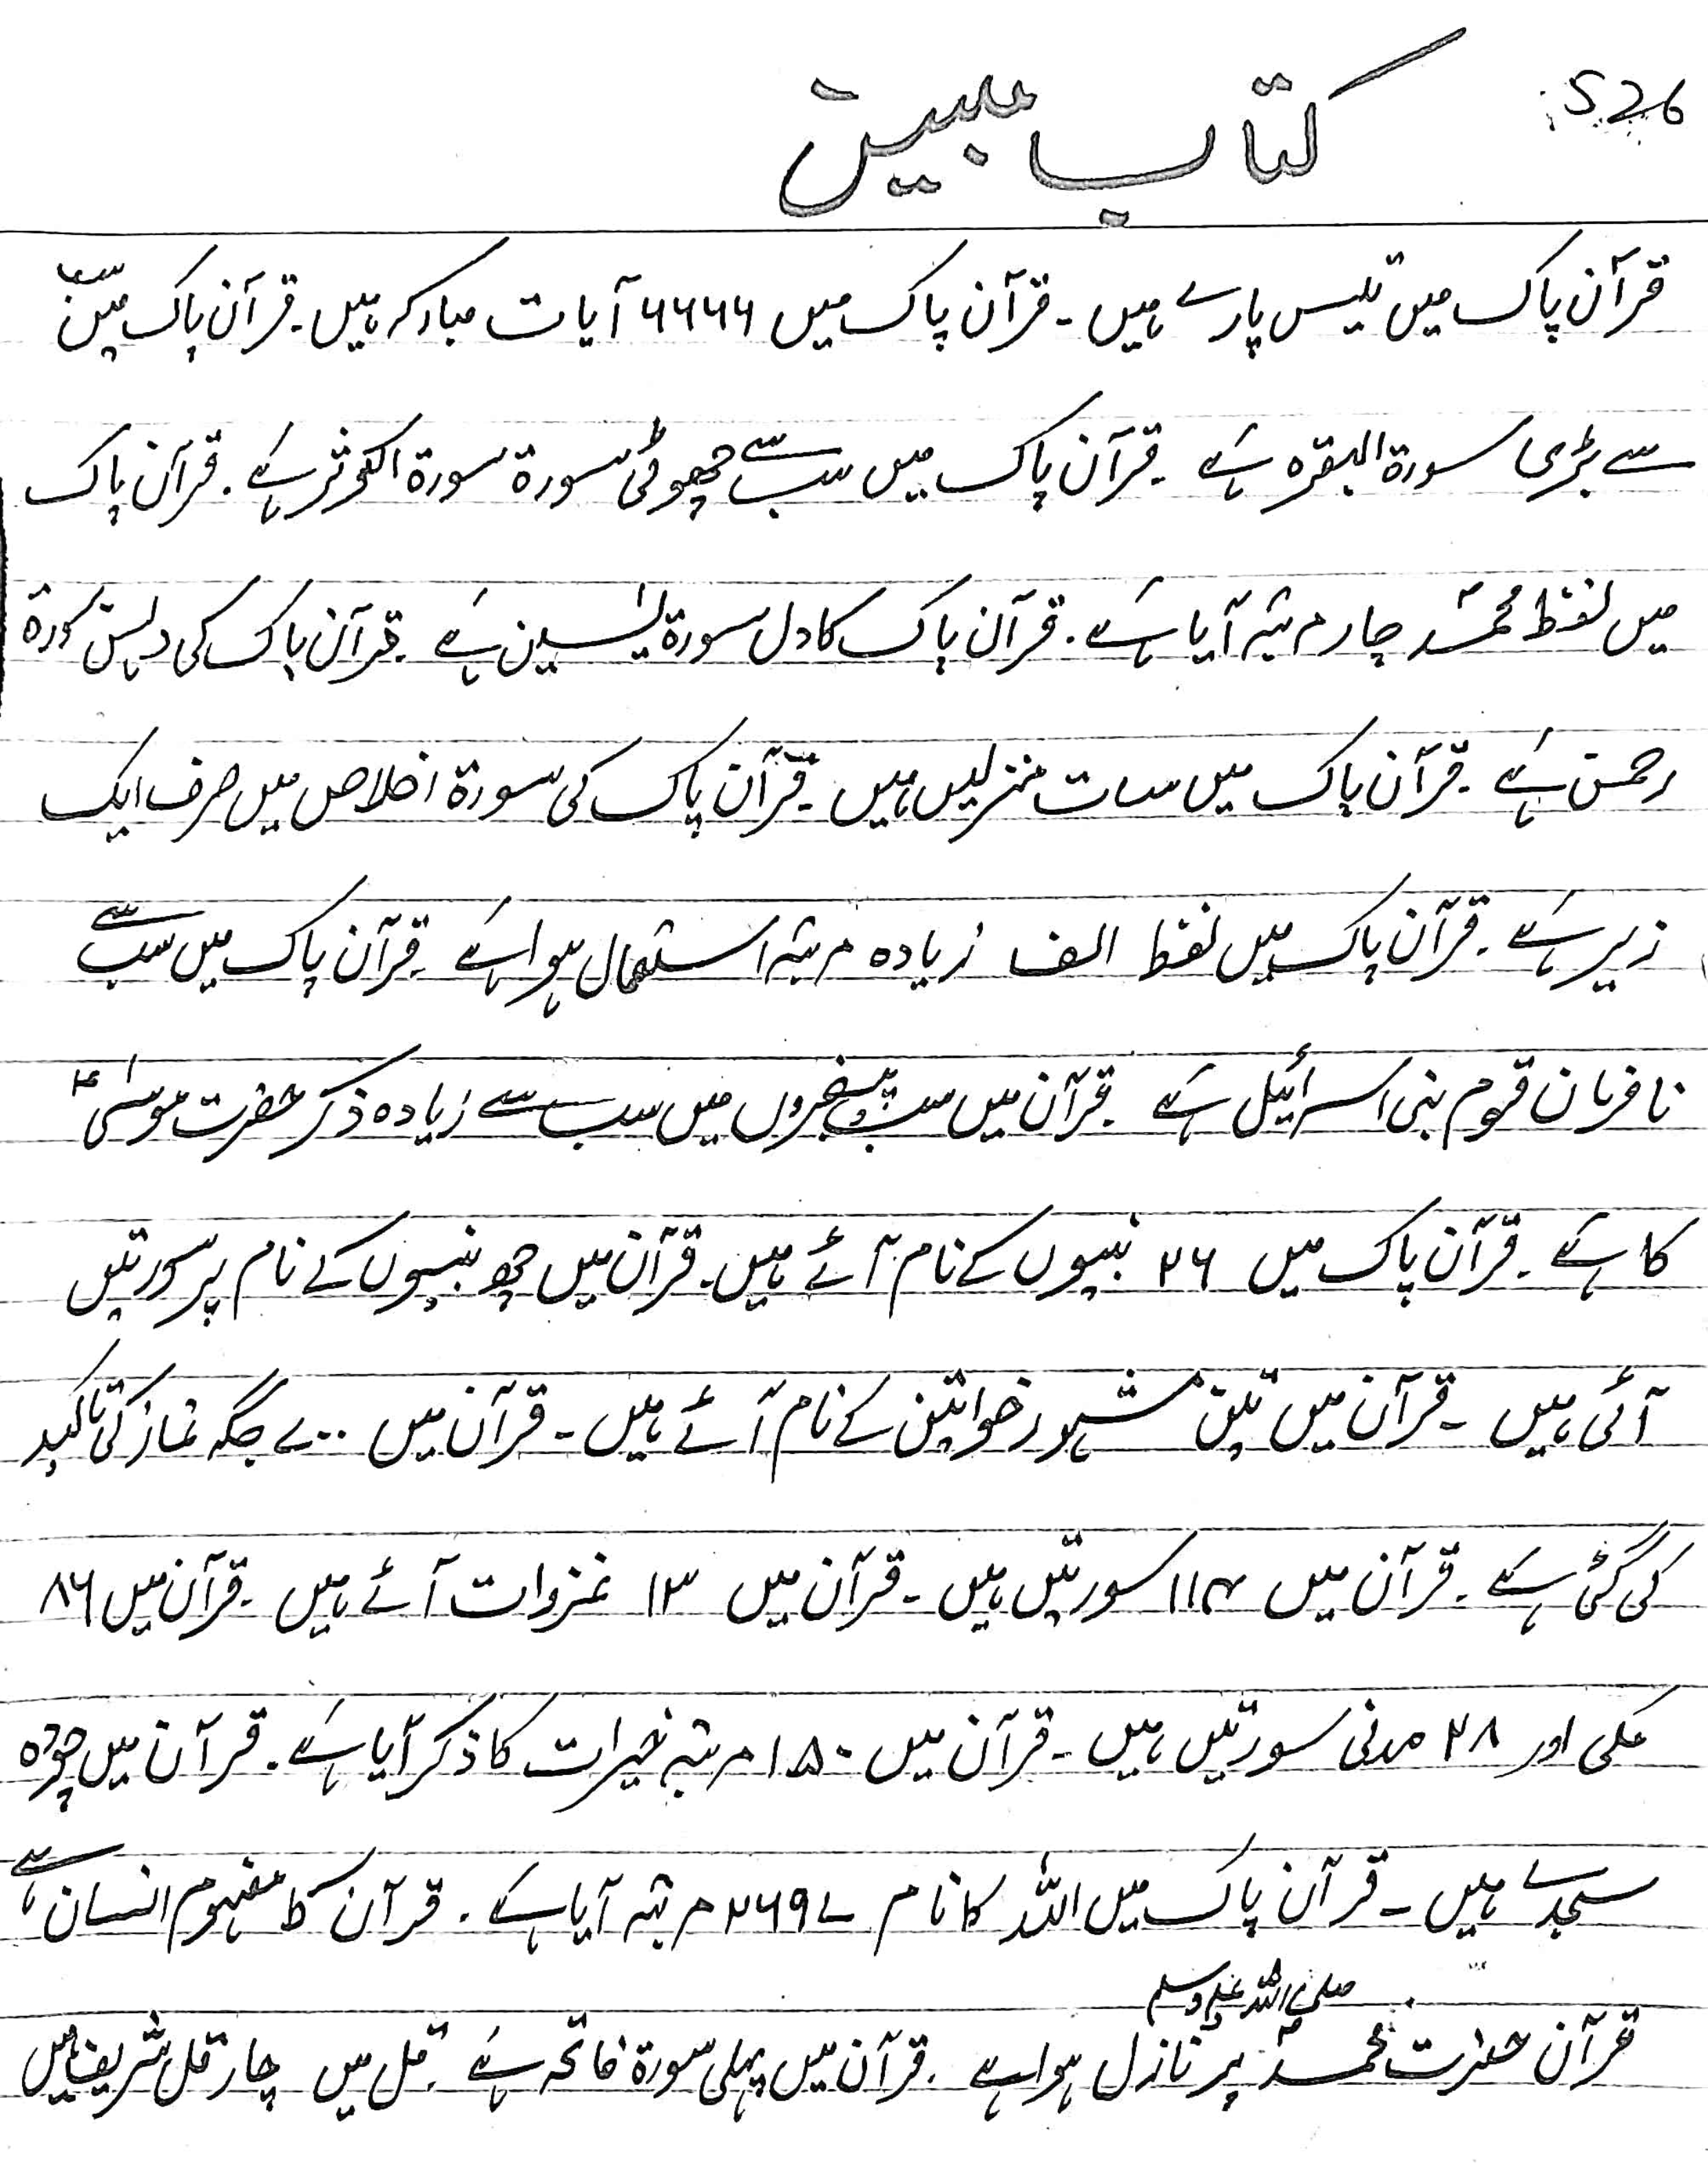 526
کتاب مبین
قرآن پاک میں تیس پارے ہیں۔ قرآن پاک میں ۶۶۶۶ آیات مبارکہ ہیں۔ قرآن پاک میں سب
سے بڑی سورۃ البقرہ ہے۔ قرآن پاک میں سب سے چھوٹی سورۃ سورۃ الکوثر ہے۔ قرآن پاک
میں لفظ محمدؐ چار مرتبہ آیا ہے۔ قرآن پاک کا دل سورۃ یٰسین ہے۔ قرآن پاک کی دلہن سورۃ
رحمن ہے۔ قرآن پاک میں سات منزلیں ہیں۔ قرآن پاک کی سورۃ اخلاص میں صرف ایک
زیر ہے۔ قرآن پاک میں لفظ الف زیادہ مرتبہ استعمال ہوا ہے۔ قرآن پاک میں سب سے
نافرمان قوم بنی اسرائیل ہے۔ قرآن میں سب پیغمبروں میں سب سے زیادہ ذکر حضرت موسیٰؑ
کا ہے۔ قرآن پاک میں ۲۶ نبیوں کے نام آئے ہیں۔ قرآن میں چھ نبیوں کے نام پر سورتیں
آئی ہیں۔ قرآن میں تین مشہور خواتین کے نام آئے ہیں۔ قرآن میں ۷۰۰ جگہ نماز کی تاکید
کی گئی ہے۔ قرآن میں ۱۱۴ سورتیں ہیں۔ قرآن میں ۱۳ غزوات آئے ہیں۔ قرآن میں ۸۶
مکی اور ۲۸ مدنی سورتیں ہیں۔ قرآن میں ۱۵۰ مرتبہ خیرات کا ذکر آیا ہے۔ قرآن میں چودہ
سجدے ہیں۔ قرآن پاک میں اللہ کا نام ۲۶۹۷ مرتبہ آیا ہے۔ قرآن کا مفہوم انسان ہے
قرآن حضرت محمدؐ صلی اللہ علیہ وسلم پر نازل ہوا ہے۔ قرآن میں پہلی سورۃ فاتحہ ہے۔ قل میں چار قل شریف ہیں